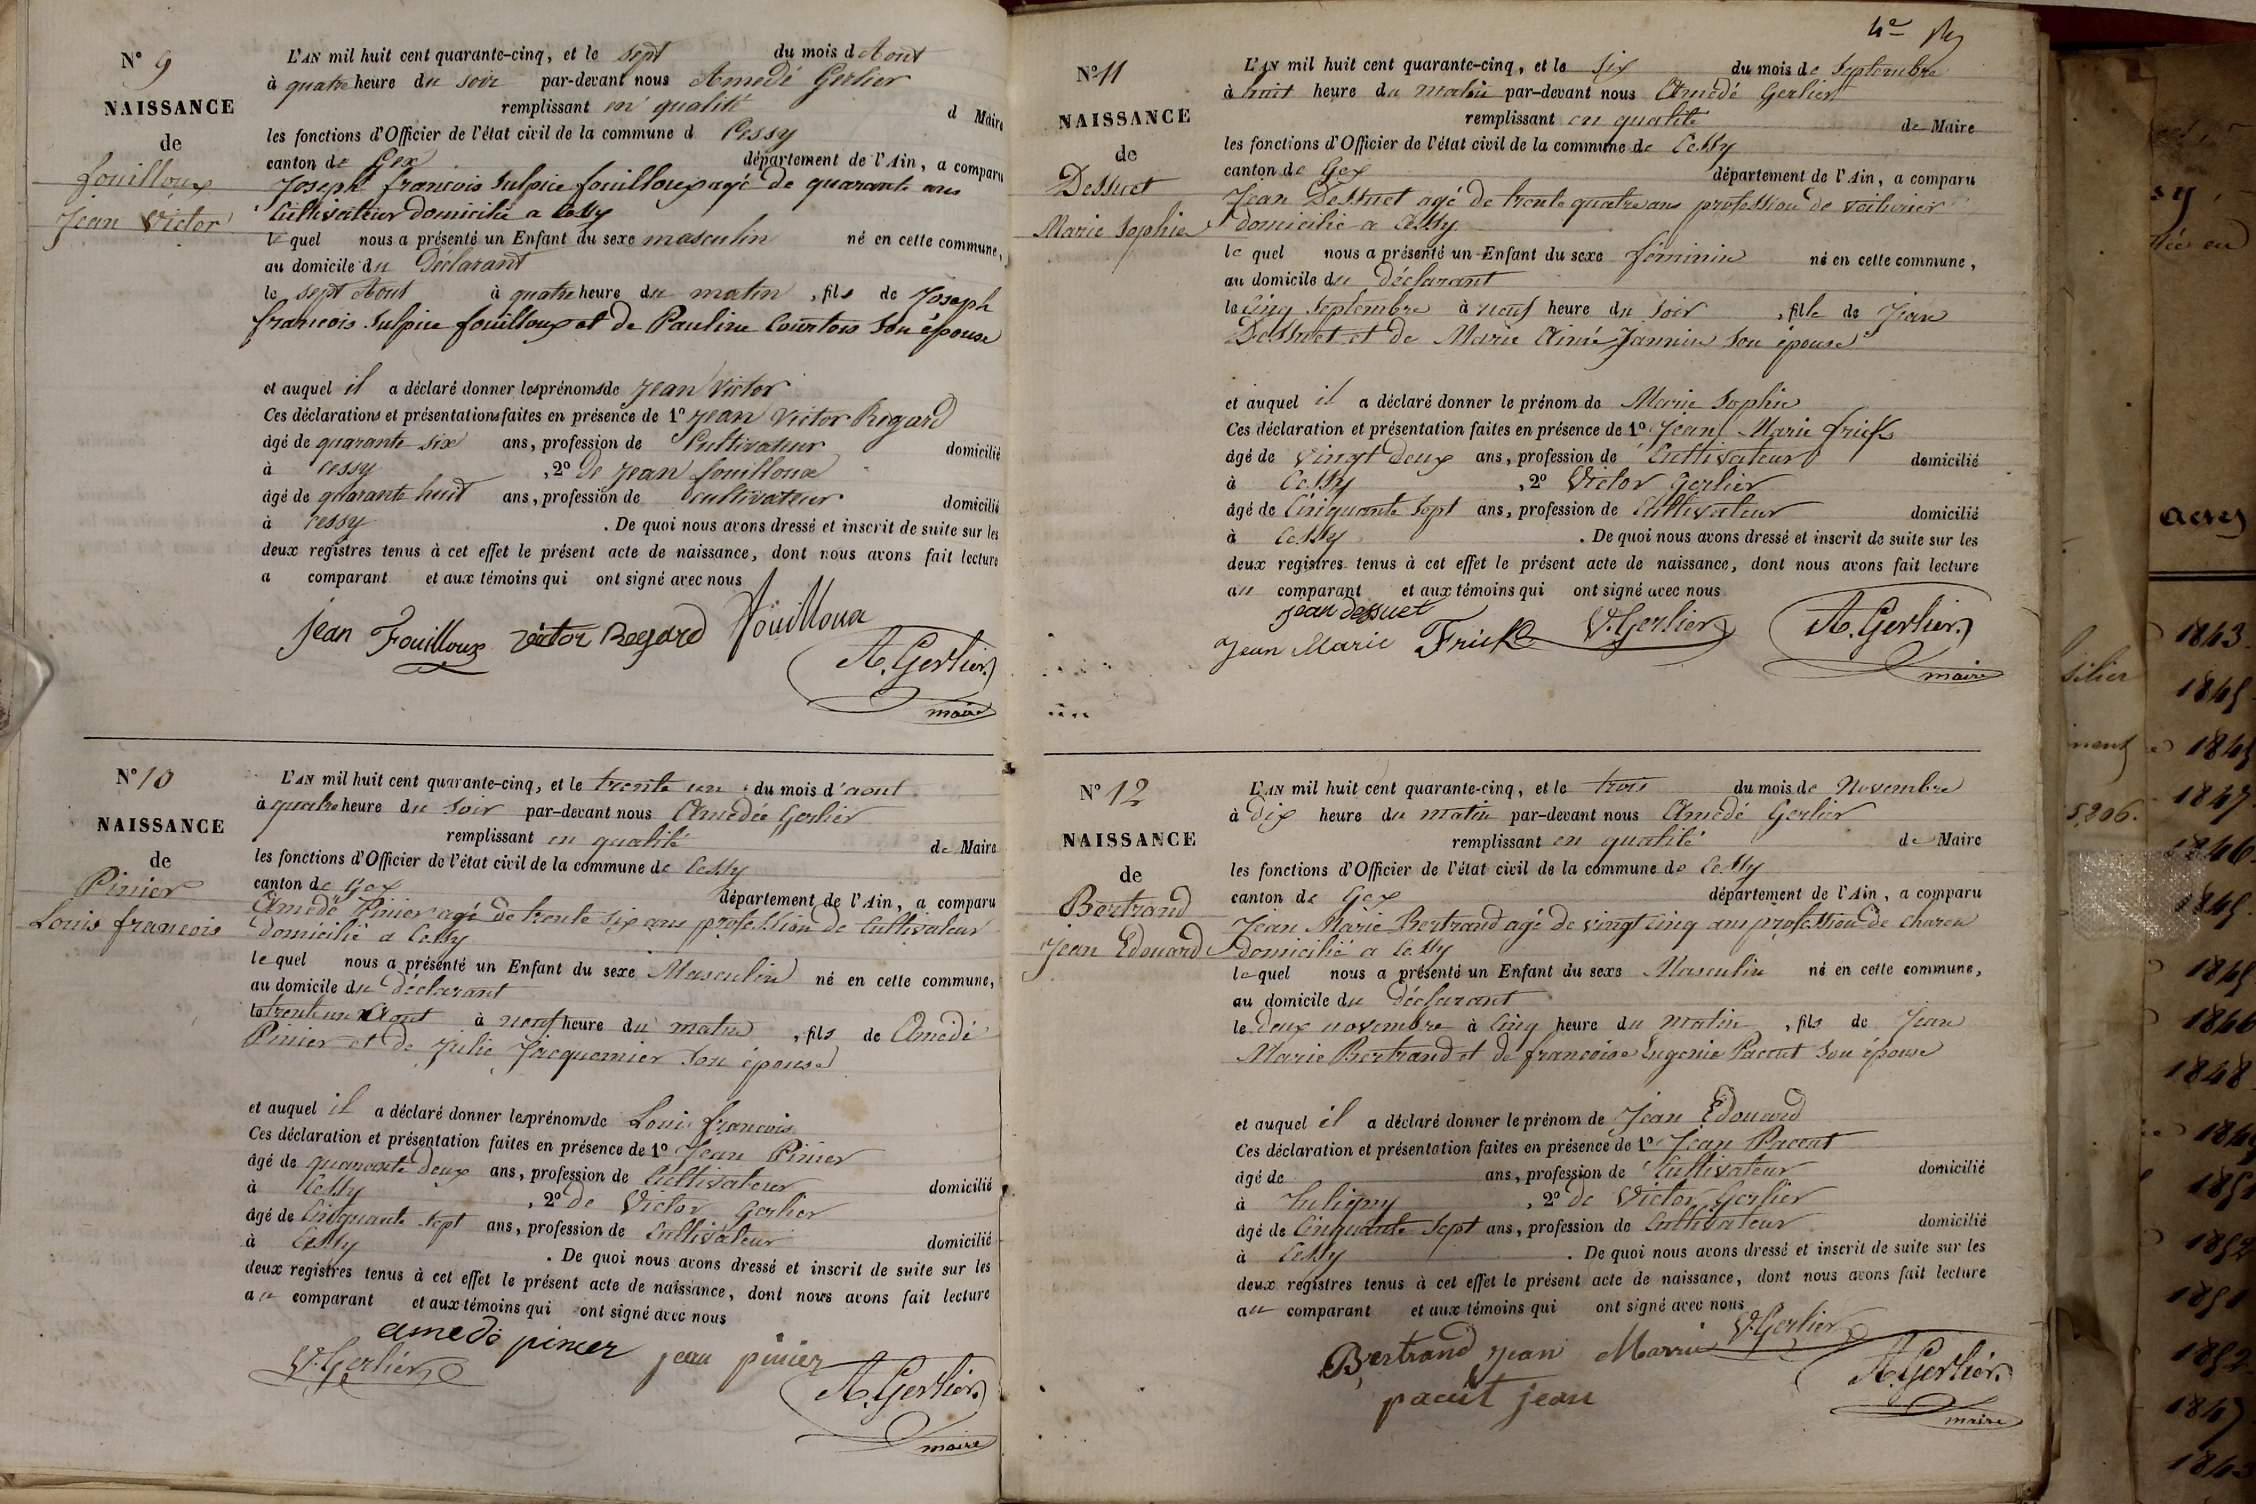 N° 9
NAISSANCE
de
fouilloux
Jean Victor
L'AN mil huit cent quarante-cinq, et le sept du mois d Aout
à quatre heure du soir par-devant nous Amedé Gerlier
remplissant en qualité d Maire
les fonctions d'Officier de l'état civil de la commune d Cessy
canton de Gex département de l'Ain, a comparu
Joseph francois Sulpice fouilloux agé de quarante ans
Cultivateur domicilié a Cessy
le quel nous a présenté un Enfant du sexe masculin né en cette commune,
au domicile du Déclarant
le sept Aout à quatre heure du matin, fils de Joseph
francois Sulpice fouilloux et de Pauline Courtois son épouse
et auquel il a déclaré donner les prénoms de Jean Victor
Ces déclarations et présentations faites en présence de 1° Jean Victor Regard
âgé de quarante six ans, profession de Cultivateur domicilié
à cessy, 2° de Jean fouilloux
âgé de quarante huit ans, profession de cultivateur domicilié
à cessy. De quoi nous avons dressé et inscrit de suite sur les
deux registres tenus à cet effet le présent acte de naissance, dont nous avons fait lecture
a comparant et aux témoins qui ont signé avec nous
jean Fouilloux victor Regard fouilloux
A. Gerlier
maire
N° 10
NAISSANCE
de
Pinier
Louis francois
L'AN mil huit cent quarante-cinq, et le trente un du mois d'aout
à quatre heure du soir par-devant nous Amédée Gerlier
remplissant en qualité de Maire
les fonctions d'Officier de l'état civil de la commune de Cessy
canton de Gex département de l'Ain, a comparu
Amédé Pinier agé de trente six ans profession de Cultivateur
domicilié a Cessy
le quel nous a présenté un Enfant du sexe Masculin né en cette commune,
au domicile du déclarant
le trente un Aout à neuf heure du matin, fils de Amedé
Pinier et de Julie Jacquemier son épouse
et auquel il a déclaré donner les prénoms de Louis francois
Ces déclaration et présentation faites en présence de 1° Jean Pinier
âgé de quarante deux ans, profession de Cultivateur domicilié
à Cessy, 2° de Victor Gerlier
âgé de Cinquante sept ans, profession de Cultivateur domicilié
à Cessy. De quoi nous avons dressé et inscrit de suite sur les
deux registres tenus à cet effet le présent acte de naissance, dont nous avons fait lecture
au comparant et aux témoins qui ont signé avec nous
amedé pinier jean pinier
V. Gerlier
A. Gerlier
maire
N° 11
NAISSANCE
de
Dessuet
Marie Sophie
L'AN mil huit cent quarante-cinq, et le six du mois de Septembre
à huit heure du matin par-devant nous Amédé Gerlier
remplissant en qualité de Maire
les fonctions d'Officier de l'état civil de la commune de Cessy
canton de Gex département de l'Ain, a comparu
Jean Dessuet agé de trente quatre ans profession de voiturier
domicilié a Cessy
le quel nous a présenté un Enfant du sexe féminin né en cette commune,
au domicile du déclarant
le Cinq Septembre à neuf heure du soir, fille de Jean
Dessuet et de Marie Aimé Jannin son épouse
et auquel il a déclaré donner le prénom de Marie Sophie
Ces déclaration et présentation faites en présence de 1° Jean Marie frick
âgé de vingt deux ans, profession de Cultivateur domicilié
à Cessy, 2° Victor Gerlier
âgé de Cinquante Sept ans, profession de Cultivateur domicilié
à Cessy. De quoi nous avons dressé et inscrit de suite sur les
deux registres tenus à cet effet le présent acte de naissance, dont nous avons fait lecture
au comparant et aux témoins qui ont signé avec nous
jean dessuet
Jean Marie Frick V. Gerlier A. Gerlier
maire
N° 12
NAISSANCE
de
Bertrand
Jean Edouard
L'AN mil huit cent quarante-cinq, et le trois du mois de Novembre
à Dix heure du matin par-devant nous Amédé Gerlier
remplissant en qualité de Maire
les fonctions d'Officier de l'état civil de la commune de Cessy
canton de Gex département de l'Ain, a comparu
Jean Marie Bertrand agé de vingt cinq ans profession de charon
domicilié a Cessy
le quel nous a présenté un Enfant du sexe Masculin né en cette commune,
au domicile du déclarant
le deux novembre à Cinq heure du matin, fils de Jean
Marie Bertrand et de francoise Eugenie Pacout son épouse
et auquel il a déclaré donner le prénom de Jean Edouard
Ces déclaration et présentation faites en présence de 1° Jean Pacout
âgé de ans, profession de Cultivateur domicilié
à, 2° de Victor Gerlier
âgé de Cinquante Sept ans, profession de Cultivateur domicilié
à Cessy. De quoi nous avons dressé et inscrit de suite sur les
deux registres tenus à cet effet le présent acte de naissance, dont nous avons fait lecture
au comparant et aux témoins qui ont signé avec nous
Bertrand jean Marrie V. Gerlier
pacut jean
A. Gerlier
maire
1843
1845
1845
5,206.
1847
1846
1845
1845
1846
1848
1852
1851
1852
1847